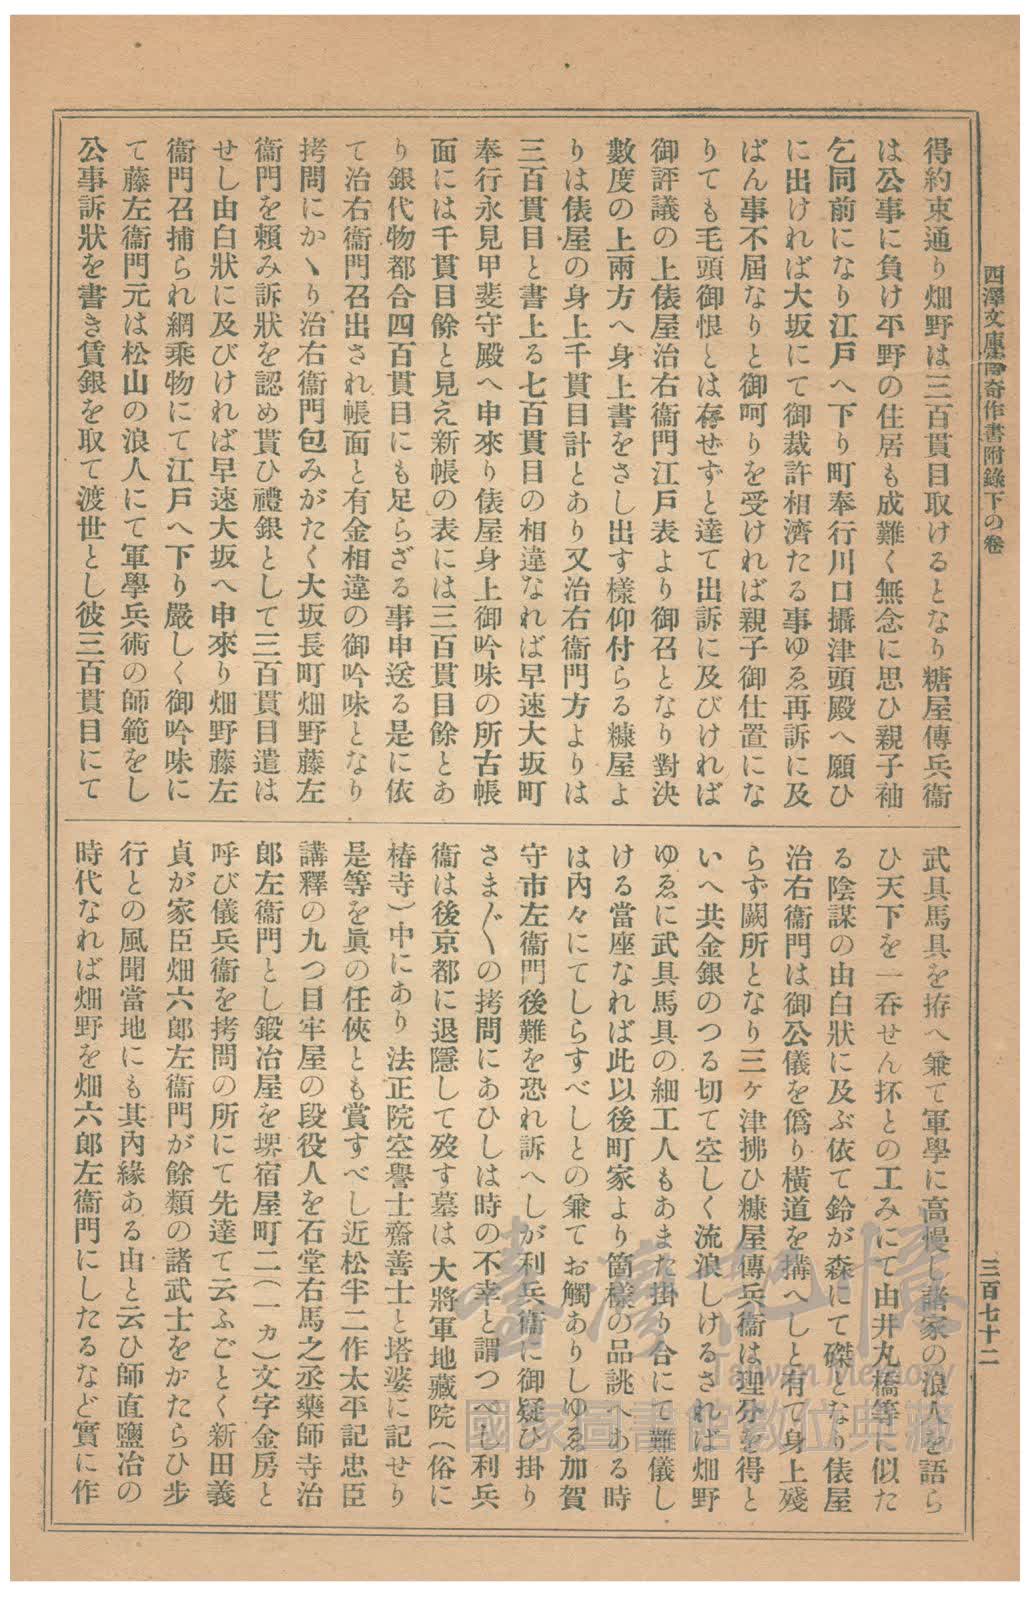 西澤文庫傳奇作書附錄下の卷
三百七十二
得約束通り畑野は三百貫目取けるとなり糖屋傳兵衞
は公事に負け平野の住居も成難く無念に思ひ親子袖
乞同前になり江戸へ下り町奉行川口攝津頭殿へ願ひ
に出ければ大坂にて御裁許相濟たる事ゆゑ再訴に及
ばん事不屆なりと御呵りを受ければ親子御仕置にな
りても毛頭御恨とは存せずと達て出訴に及びければ
御評議の上俵屋治右衞門江戸表より御召となり對決
數度の上兩方へ身上書をさし出す樣仰付らる糠屋よ
りは俵屋の身上千貫目計とあり又治右衞門方よりは
三百貫目と書上る七百貫目の相違なれば早速大坂町
奉行永見甲斐守殿へ申來り俵屋身上御吟味の所古帳
面には千貫目餘と見え新帳の表には三百貫目餘とあ
り銀代物都合四百貫目にも足らざる事申送る是に依
て治右衞門召出され帳面と有金相違の御吟味となり
拷問にかゝり治右衞門包みがたく大坂長町畑野藤左
衞門を賴み訴狀を認め貰ひ禮銀として三百貫目遣は
せし由白狀に及びければ早速大坂へ申來り畑野藤左
衞門召捕られ網乘物にて江戸へ下り嚴しく御吟味に
て藤左衞門元は松山の浪人にて軍學兵術の師範をし
公事訴狀を書き賃銀を取て渡世とし彼三百貫目にて
武具馬具を拵へ兼て軍學に高慢し諸家の浪人を語ら
ひ天下を一呑せん抔との工みにて由井丸橋等に似た
る陰謀の由白狀に及ぶ依て鈴が森にて磔となり俵屋
治右衞門は御公儀を僞り橫道を搆へしと有て身上殘
らず闕所となり三ケ津拂ひ糠屋傳兵衞は理分を得と
いへ共金銀のつる切て空しく流浪しけるされば畑野
ゆゑに武具馬具の細工人もあまた掛り合にて難儀し
ける當座なれば此以後町家より箇樣の品誂へある時
は內々にてしらすべしとの兼てお觸ありしゆゑ加賀
守市左衞門後難を恐れ訴へしが利兵衞に御疑ひ掛り
さま〴〵の拷問にあひしは時の不幸と謂つべし利兵
衞は後京都に退隱して歿す墓は大將軍地藏院(俗に
椿寺)中にあり法正院空譽士齋善士と塔婆に記せり
是等を眞の任俠とも賞すべし近松半二作太平記忠臣
講釋の九つ目牢屋の段役人を石堂右馬之丞藥師寺治
郎左衞門とし鍛冶屋を堺宿屋町二(一ヵ)文字金房と
呼び儀兵衞を拷問の所にて先達て云ふごとく新田義
貞が家臣畑六郎左衞門が餘類の諸武士をかたらひ步
行との風聞當地にも其內緣ある由と云ひ師直鹽冶の
時代なれば畑野を畑六郎左衞門にしたるなど實に作
臺灣記憶
Taiwan Memory
國家圖書館數位典藏